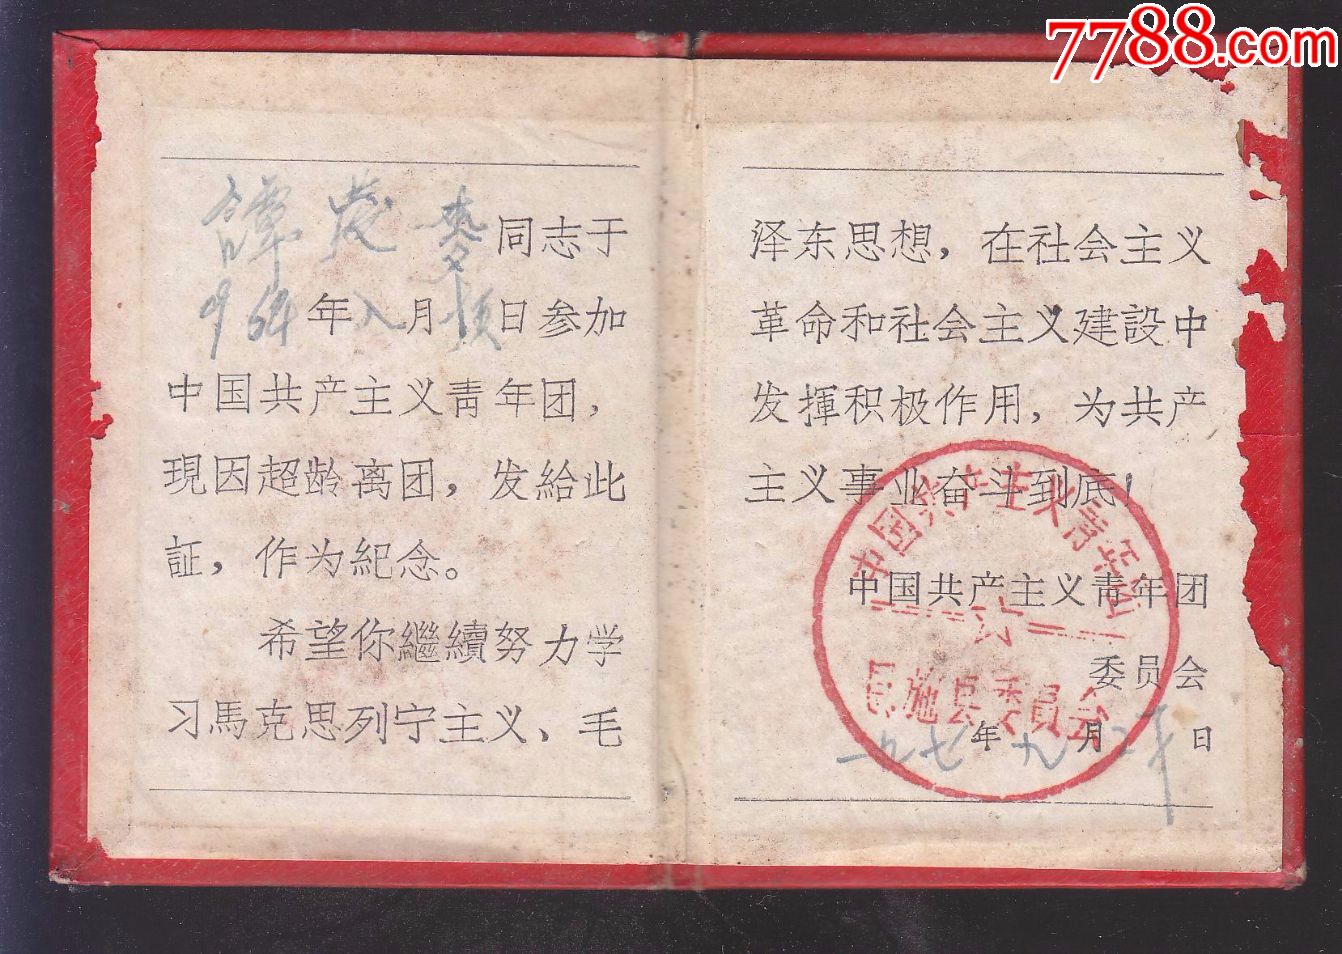 7788.com
譚茂 同志于
1964年八月 日参加
中国共产主义青年团,
現因超龄离团,发給此
証,作为紀念。
希望你繼續努力学
习馬克思列宁主义、毛
泽东思想,在社会主义
革命和社会主义建設中
发揮积极作用,为共产
主义事业奋斗到底!
中国共产主义青年团
委员会
一九七 年九月 日
中国共产主义青年团
恩施县委員会